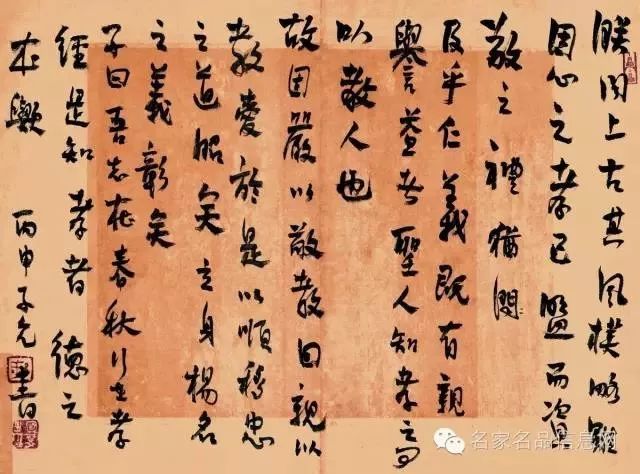 朕聞上古其風樸略雖
因心之孝已而資
敬之禮猶簡
及乎仁義既有親
譽益著聖人知孝之可
以教人也
故因嚴以敬教曰親以
教愛於是以順移忠
之道昭矣立身揚名
之義彰矣
子曰吾志在春秋行在孝
經是知孝者德之
本歟 丙申子允書
名家名品信息网